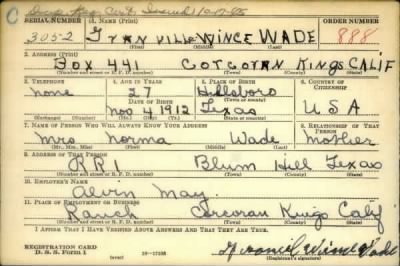 SERIAL NUMBER 1. NAME (Print) ORDER NUMBER
3052 WINCE WADE 888
(First) (Middle) (Last)
2. ADDRESS (Print)
Box 441 CORCORAN KINGS CALIF
(Number and street or R. F. D. number) (Town) (County) (State)
3. TELEPHONE 4. AGE IN YEARS 5. PLACE OF BIRTH 6. COUNTRY OF CITIZENSHIP
none 27 Hillsboro
DATE OF BIRTH (Town or county)
Nov 4 1912 Texas USA
(Exchange) (Number) (Mo.) (Day) (Yr.) (State or country)
7. NAME OF PERSON WHO WILL ALWAYS KNOW YOUR ADDRESS 8. RELATIONSHIP OF THAT PERSON
Mrs Norma Wade Mother
(Mr., Mrs., Miss) (First) (Middle) (Last)
9. ADDRESS OF THAT PERSON
RR1 Blum Hill Texas
(Number and street or R. F. D. number) (Town) (County) (State)
10. EMPLOYER'S NAME
Alvin May
11. PLACE OF EMPLOYMENT OR BUSINESS
Ranch Corcoran Kings Calif
(Number and street or R. F. D. number) (Town) (County) (State)
I AFFIRM THAT I HAVE VERIFIED ABOVE ANSWERS AND THAT THEY ARE TRUE.
REGISTRATION CARD
D. S. S. Form 1 (over) Wince Wade
(Registrant's signature)